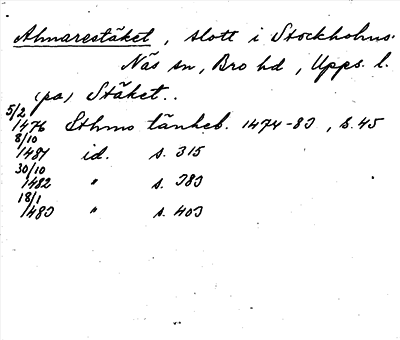 Almarestäket, slott i Stockholms-
Näs sn, Bro hd, Upps. l.
(pa) Stäket..
5/2 1476 Sthms tänkeb. 1474-83, s. 45
8/10 1481 id. s. 315
30/10 1482 " s. 383
18/1 1483 " s. 403